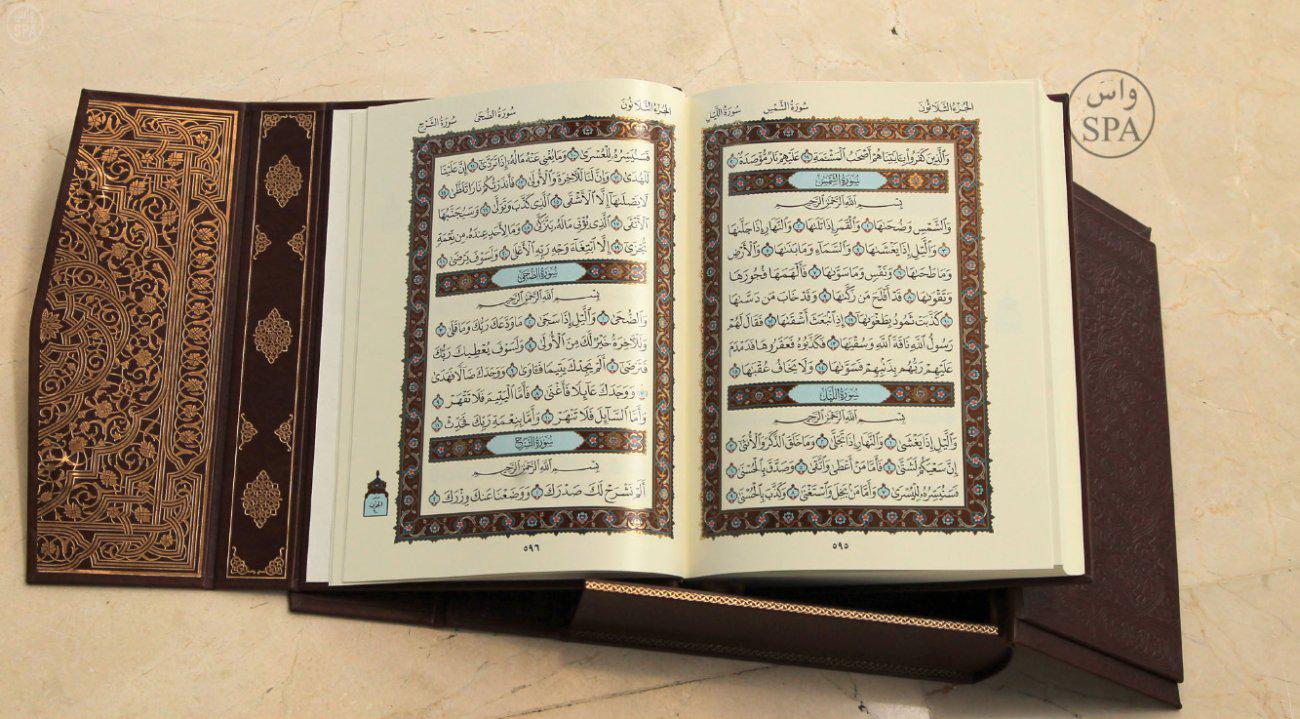 الجُزْءُ الثَّلَاثُونَ سُورَةُ الشَّمْسِ سُورَةُ اللَّيْلِ
وَٱلَّذِينَ كَفَرُواْ بِـَٔايَٰتِنَا هُمۡ أَصۡحَٰبُ ٱلۡمَشۡـَٔمَةِ ١٩ عَلَيۡهِمۡ نَارٞ مُّؤۡصَدَةُۢ ٢٠
سُورَةُ الشَّمْسِ
بِسۡمِ ٱللَّهِ ٱلرَّحۡمَٰنِ ٱلرَّحِيمِ
وَٱلشَّمۡسِ وَضُحَىٰهَا ١ وَٱلۡقَمَرِ إِذَا تَلَىٰهَا ٢ وَٱلنَّهَارِ إِذَا جَلَّىٰهَا
٣ وَٱلَّيۡلِ إِذَا يَغۡشَىٰهَا ٤ وَٱلسَّمَآءِ وَمَا بَنَىٰهَا ٥ وَٱلۡأَرۡضِ
وَمَا طَحَىٰهَا ٦ وَنَفۡسٖ وَمَا سَوَّىٰهَا ٧ فَأَلۡهَمَهَا فُجُورَهَا
وَتَقۡوَىٰهَا ٨ قَدۡ أَفۡلَحَ مَن زَكَّىٰهَا ٩ وَقَدۡ خَابَ مَن دَسَّىٰهَا
١٠ كَذَّبَتۡ ثَمُودُ بِطَغۡوَىٰهَآ ١١ إِذِ ٱنۢبَعَثَ أَشۡقَىٰهَا ١٢ فَقَالَ لَهُمۡ
رَسُولُ ٱللَّهِ نَاقَةَ ٱللَّهِ وَسُقۡيَٰهَا ١٣ فَكَذَّبُوهُ فَعَقَرُوهَا فَدَمۡدَمَ
عَلَيۡهِمۡ رَبُّهُم بِذَنۢبِهِمۡ فَسَوَّىٰهَا ١٤ وَلَا يَخَافُ عُقۡبَٰهَا ١٥
سُورَةُ اللَّيْلِ
بِسۡمِ ٱللَّهِ ٱلرَّحۡمَٰنِ ٱلرَّحِيمِ
وَٱلَّيۡلِ إِذَا يَغۡشَىٰ ١ وَٱلنَّهَارِ إِذَا تَجَلَّىٰ ٢ وَمَا خَلَقَ ٱلذَّكَرَ وَٱلۡأُنثَىٰٓ ٣
إِنَّ سَعۡيَكُمۡ لَشَتَّىٰ ٤ فَأَمَّا مَنۡ أَعۡطَىٰ وَٱتَّقَىٰ ٥ وَصَدَّقَ بِٱلۡحُسۡنَىٰ ٦
فَسَنُيَسِّرُهُۥ لِلۡيُسۡرَىٰ ٧ وَأَمَّا مَنۢ بَخِلَ وَٱسۡتَغۡنَىٰ ٨ وَكَذَّبَ بِٱلۡحُسۡنَىٰ ٩
٥٩٥
الجُزْءُ الثَّلَاثُونَ سُورَةُ الضُّحَىٰ سُورَةُ الشَّرْحِ
فَسَنُيَسِّرُهُۥ لِلۡعُسۡرَىٰ ١٠ وَمَا يُغۡنِي عَنۡهُ مَالُهُۥٓ إِذَا تَرَدَّىٰٓ ١١ إِنَّ عَلَيۡنَا
لَلۡهُدَىٰ ١٢ وَإِنَّ لَنَا لَلۡأٓخِرَةَ وَٱلۡأُولَىٰ ١٣ فَأَنذَرۡتُكُمۡ نَارٗا تَلَظَّىٰ ١٤
لَا يَصۡلَىٰهَآ إِلَّا ٱلۡأَشۡقَى ١٥ ٱلَّذِي كَذَّبَ وَتَوَلَّىٰ ١٦ وَسَيُجَنَّبُهَا
ٱلۡأَتۡقَى ١٧ ٱلَّذِي يُؤۡتِي مَالَهُۥ يَتَزَكَّىٰ ١٨ وَمَا لِأَحَدٍ عِندَهُۥ مِن نِّعۡمَةٖ
تُجۡزَىٰٓ ١٩ إِلَّا ٱبۡتِغَآءَ وَجۡهِ رَبِّهِ ٱلۡأَعۡلَىٰ ٢٠ وَلَسَوۡفَ يَرۡضَىٰ ٢١
سُورَةُ الضُّحَىٰ
بِسۡمِ ٱللَّهِ ٱلرَّحۡمَٰنِ ٱلرَّحِيمِ
وَٱلضُّحَىٰ ١ وَٱلَّيۡلِ إِذَا سَجَىٰ ٢ مَا وَدَّعَكَ رَبُّكَ وَمَا قَلَىٰ ٣
وَلَلۡأٓخِرَةُ خَيۡرٞ لَّكَ مِنَ ٱلۡأُولَىٰ ٤ وَلَسَوۡفَ يُعۡطِيكَ رَبُّكَ
فَتَرۡضَىٰٓ ٥ أَلَمۡ يَجِدۡكَ يَتِيمٗا فَـَٔاوَىٰ ٦ وَوَجَدَكَ ضَآلّٗا فَهَدَىٰ
٧ وَوَجَدَكَ عَآئِلٗا فَأَغۡنَىٰ ٨ فَأَمَّا ٱلۡيَتِيمَ فَلَا تَقۡهَرۡ ٩
وَأَمَّا ٱلسَّآئِلَ فَلَا تَنۡهَرۡ ١٠ وَأَمَّا بِنِعۡمَةِ رَبِّكَ فَحَدِّثۡ ١١
سُورَةُ الشَّرْحِ
بِسۡمِ ٱللَّهِ ٱلرَّحۡمَٰنِ ٱلرَّحِيمِ
أَلَمۡ نَشۡرَحۡ لَكَ صَدۡرَكَ ١ وَوَضَعۡنَا عَنكَ وِزۡرَكَ ٢
٥٩٦
وَاسَ
SPA